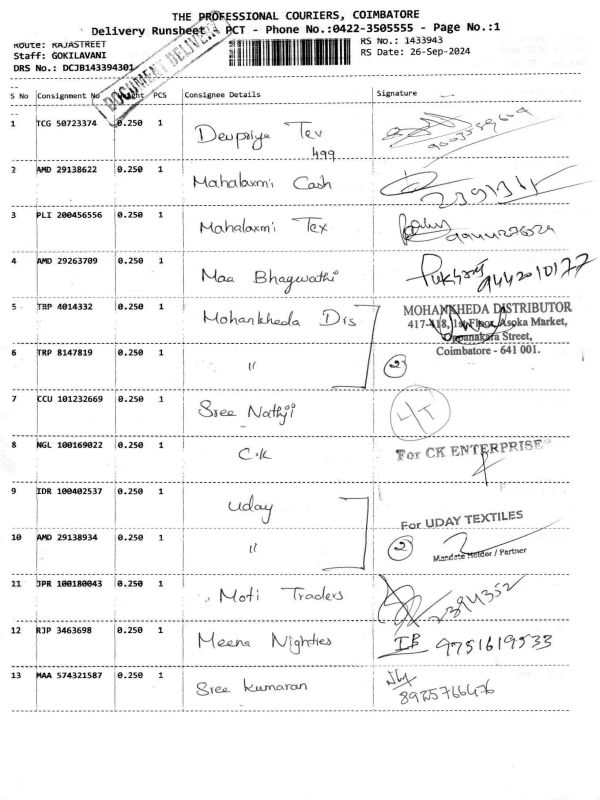 THE PROFESSIONAL COURIERS, COIMBATORE
Delivery Runsheet - PCT - Phone No.:0422-3505555 - Page No.:1
Route: RAJASTREET
RS No.: 1433943
Staff: GOKILAVANI
RS Date: 26-Sep-2024
DRS No.: DCJB143394301
DOCUMENT DELIVERY
S No Consignment No Weight PCS Consignee Details Signature
1 TCG 50723374 0.250 1 Devpriya Tex
499
2 AMD 29138622 0.250 1 Mahalaxmi Cash 2391311
3 PLI 200456556 0.250 1 Mahalaxmi Tex
4 AMD 29263709 0.250 1 Maa Bhagwathi 9442010177
5 TRP 4014332 0.250 1 Mohankheda Dis
MOHANKHEDA DISTRIBUTOR
417-418, 1st Floor, Asoka Market,
Oppanakara Street,
Coimbatore - 641 001.
6 TRP 8147819 0.250 1 " 2
7 CCU 101232669 0.250 1 Sree Nathji
8 NGL 100169022 0.250 1 C.K For CK ENTERPRISE
9 IDR 100402537 0.250 1 Uday
For UDAY TEXTILES
10 AMD 29138934 0.250 1 " 2
Mandate Holder / Partner
11 JPR 100180043 0.250 1 Moti Traders 2394352
12 RJP 3463698 0.250 1 Meena Nighties 9751619533
13 MAA 574321587 0.250 1 Sree Kumaran
8925766476